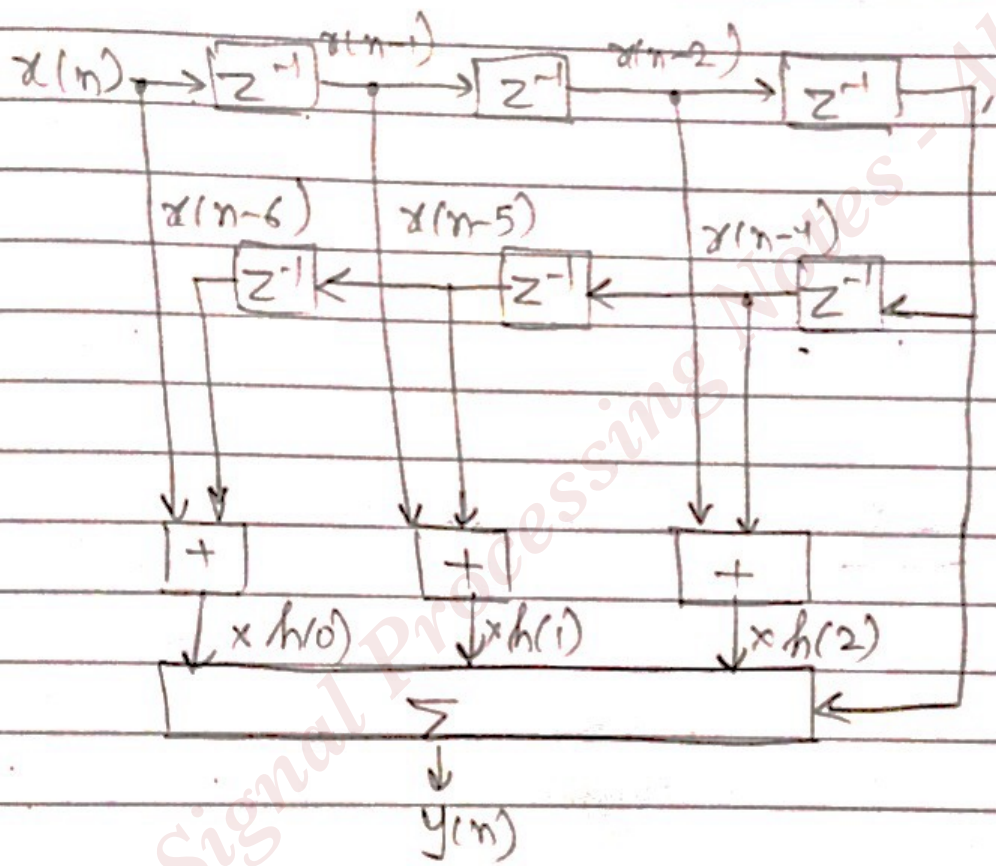 x(n) z⁻¹ x(n-1) z⁻¹ x(n-2) z⁻¹
x(n-6) x(n-5) x(n-4)
z⁻¹ z⁻¹ z⁻¹
+ + +
x h(0) x h(1) x h(2)
Σ
y(n)
Signal Processing Notes - A